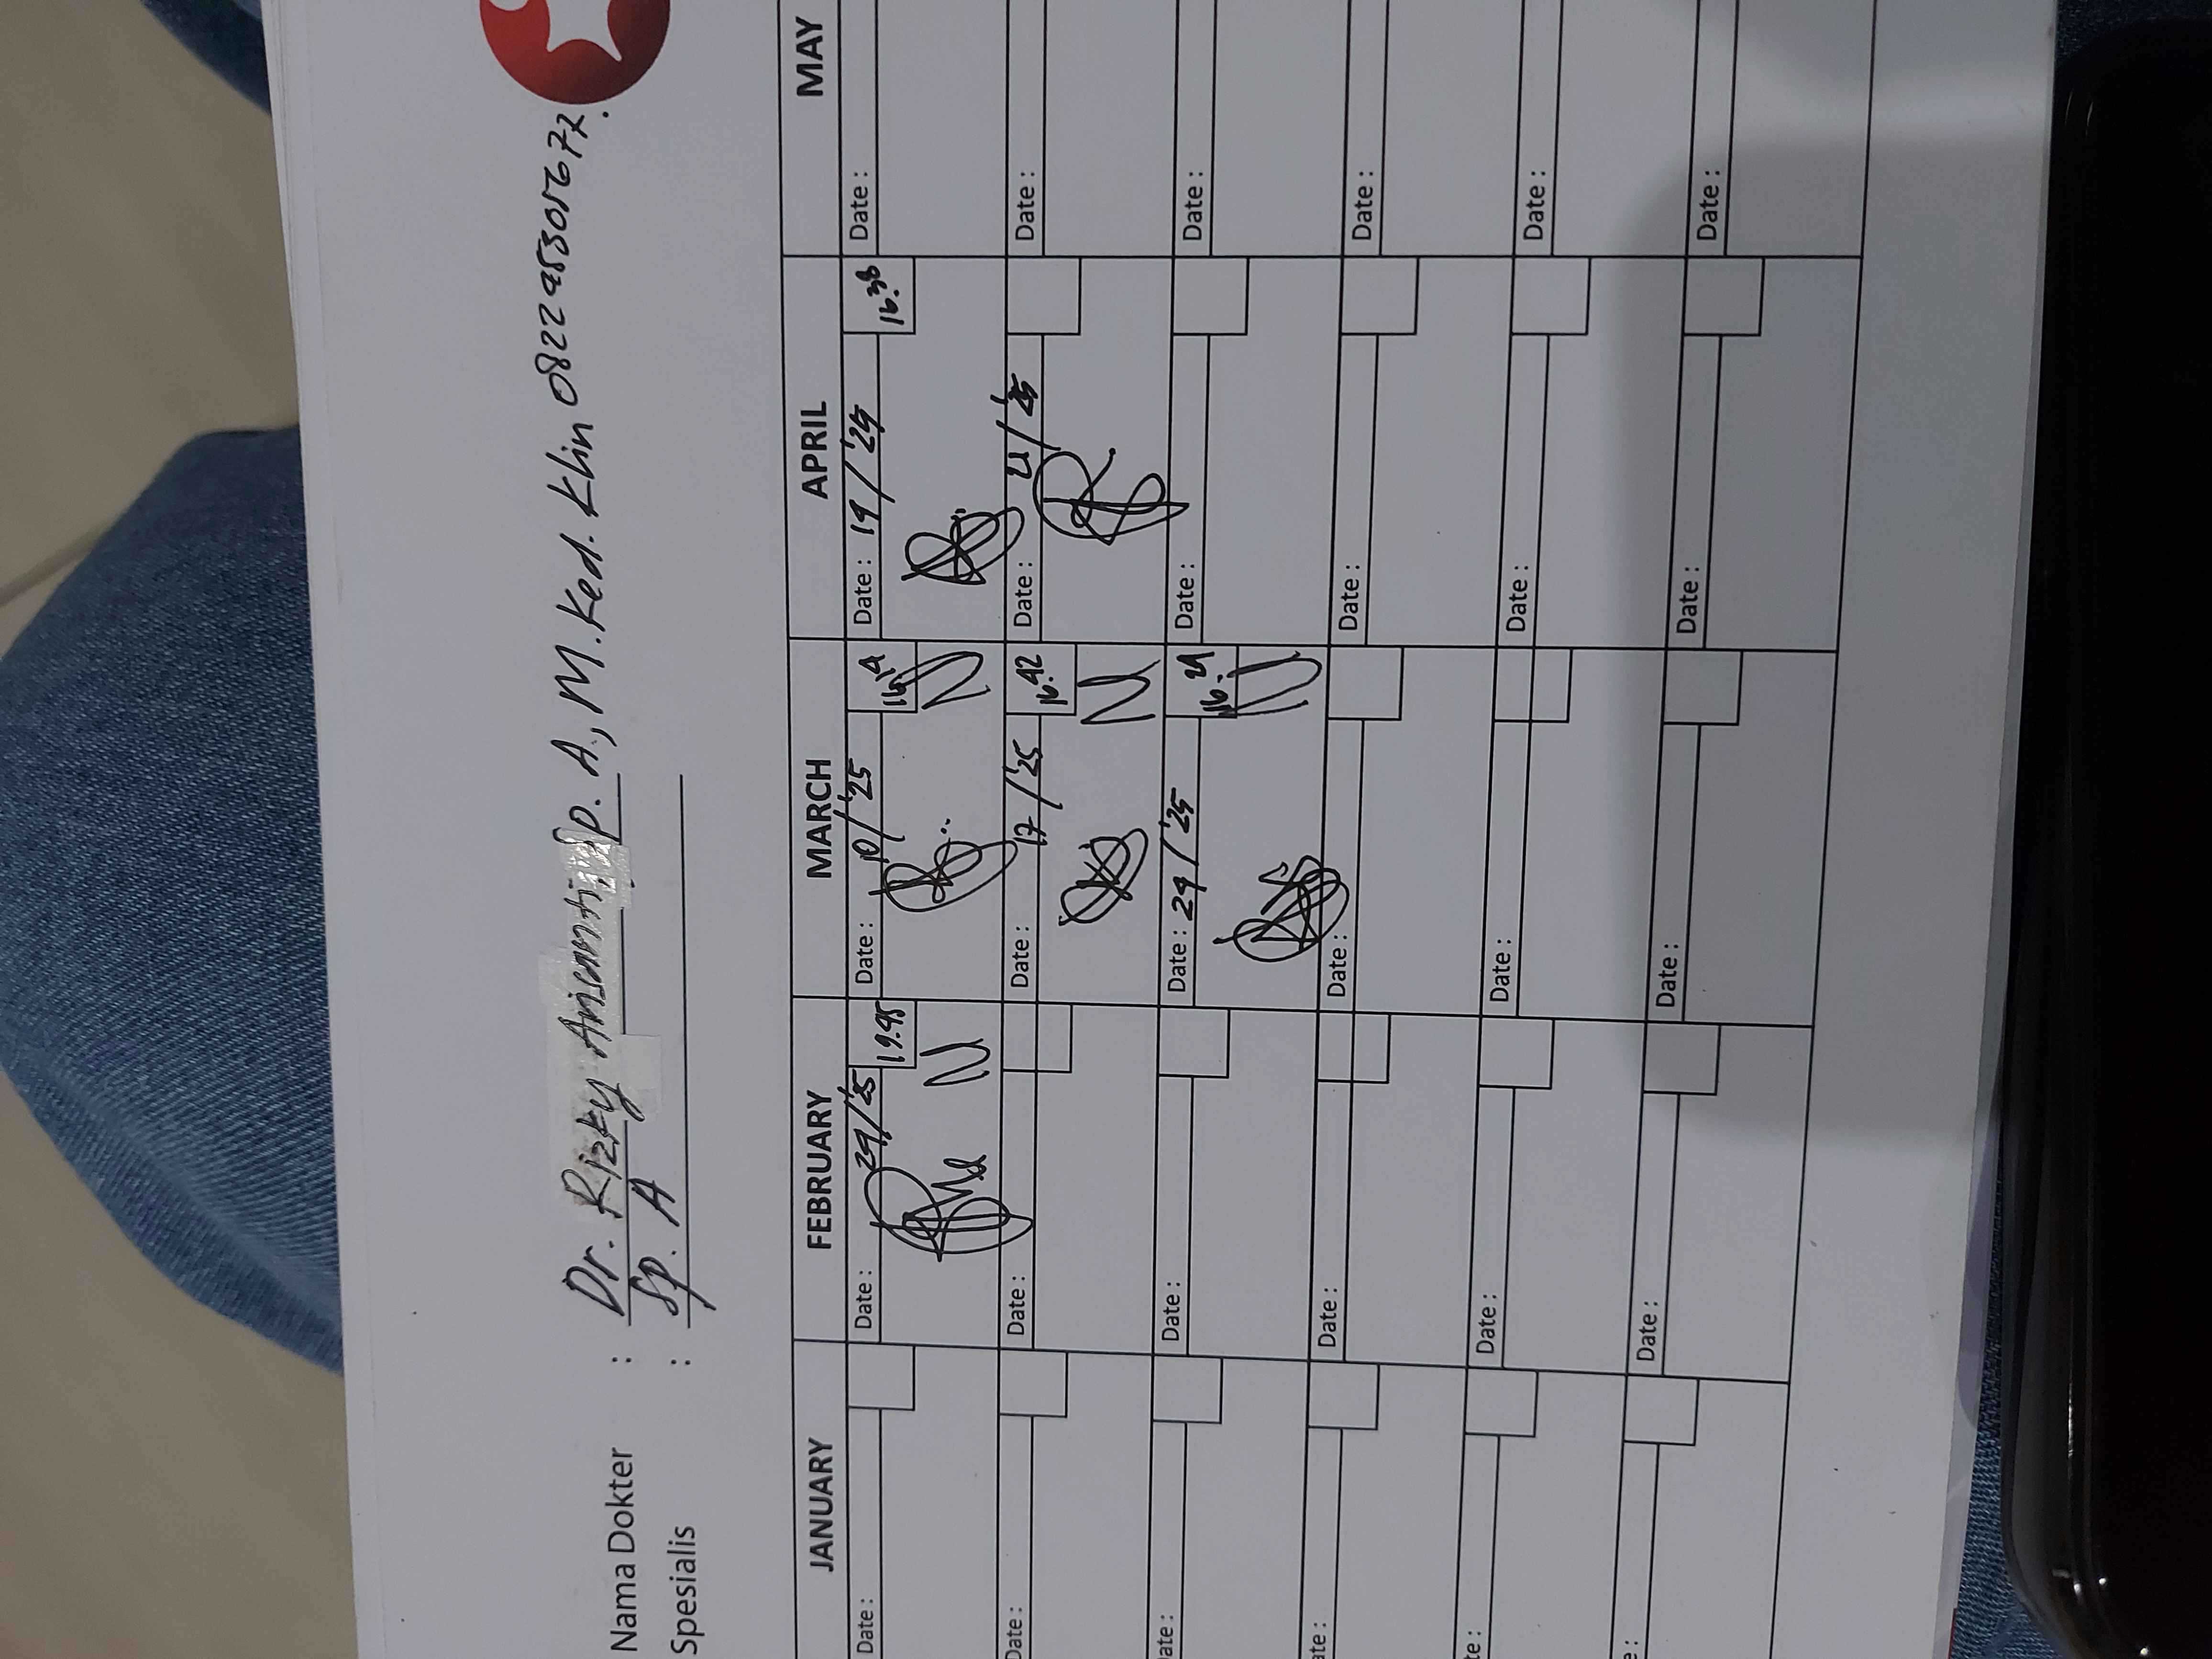 Nama Dokter : Dr. Rizky Arisanti. Sp. A, M.Ked. Klin
Spesialis : Sp. A
JANUARY FEBRUARY MARCH APRIL MAY
Date : Date : 24/'25 19.45 Date : 10/'25 Date : 16.38 Date :
Date : Date : Date : 17/'25 16.42 Date : Date :
Date : Date : Date : 24/'25 16.21 Date : Date :
Date : Date : Date : Date : Date :
Date : Date : Date : Date : Date :
Date : Date : Date : Date :